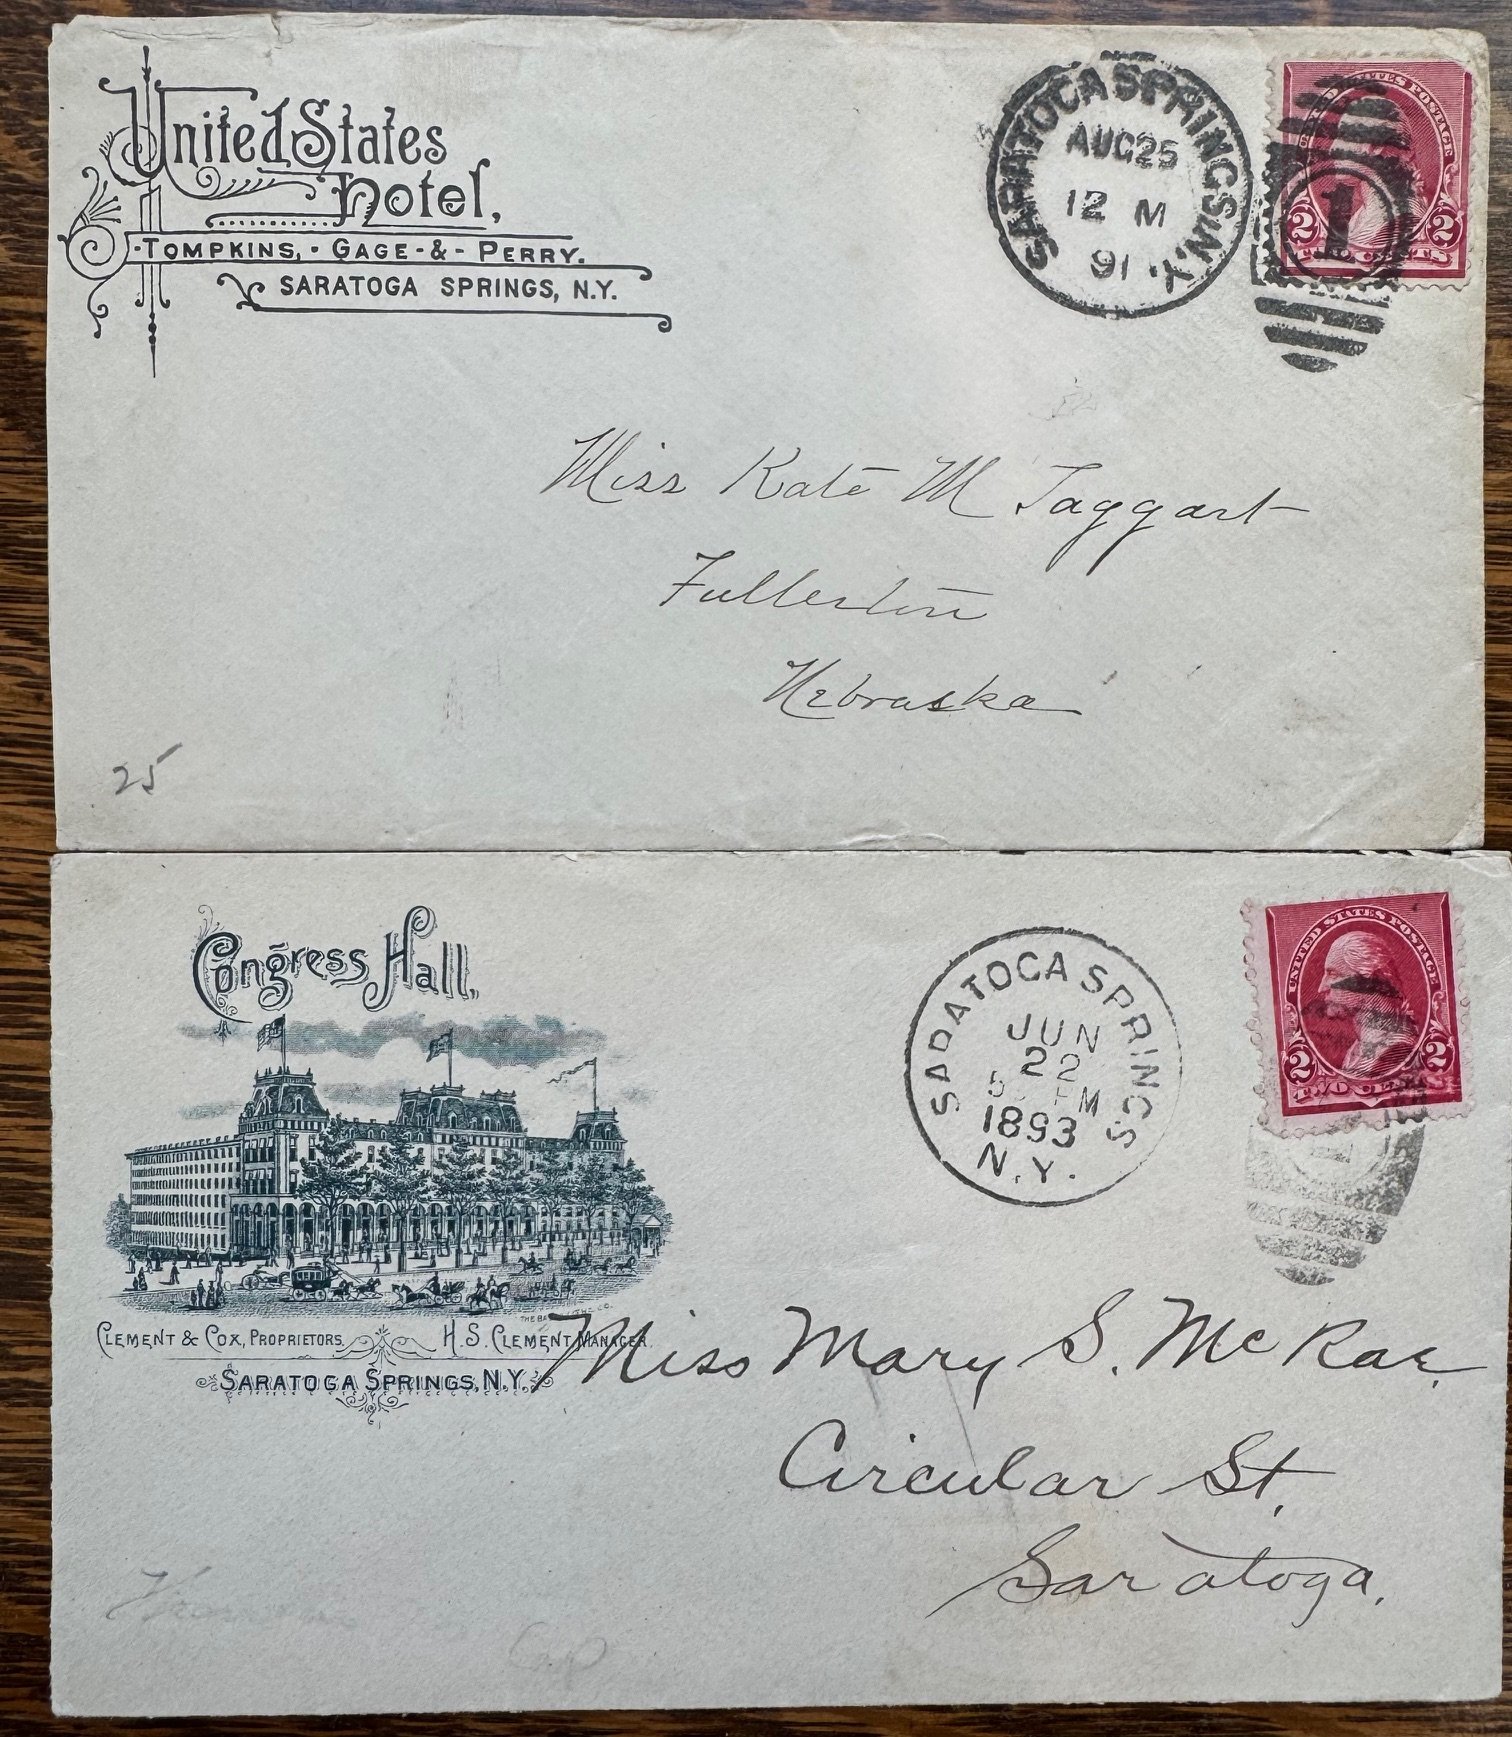 United States
Hotel,
TOMPKINS, - GAGE - & - PERRY.
SARATOGA SPRINGS, N.Y.
SARATOGA SPRINGS, N.Y.
AUG 25
12 M
91
1
UNITED STATES POSTAGE
2 2
TWO CENTS
Miss Kate M Taggart
Fullerton
Nebraska
25
Congress Hall,
CLEMENT & COX, PROPRIETORS, H. S. CLEMENT MANAGER.
SARATOGA SPRINGS, N.Y.
SARATOGA SPRINGS
JUN
22
5 PM
1893
N.Y.
UNITED STATES POSTAGE
2 2
TWO CE
Miss Mary S. McRae,
Circular St,
Saratoga.